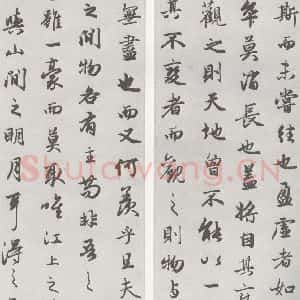 斯而未嘗往也盈虛者如
卒莫消長也蓋將自其
觀之則天地曾不能以一
其不變者而觀之則物與
無盡也而又何羨乎且夫
之間物各有主苟非吾之
雖一豪而莫取唯江上之
與山間之明月耳得之
Shufawang.CN